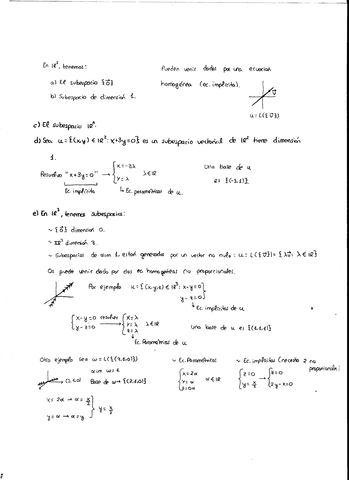 En ℝ², tenemos:
a) El subespacio {0⃗}
b) Subespacio de dimensión 1.
Pueden venir dados por una ecuación
homogénea (ec. implícita).
u = L({v⃗})
c) El subespacio ℝ².
d) Sea u = {(x,y) ∈ ℝ²: x+3y=0} es un subespacio vectorial de ℝ² tiene dimensión
1.
Resuelvo "x+3y=0" → { x=-3λ
y=λ λ∈ℝ
Ec implícita
↳ Ec. paramétricas de u.
Una base de u
es {(-3,1)}.
e) En ℝ³, tenemos subespacios:
~ {0⃗} dimensión 0.
~ ℝ³ dimensión 3.
~ Subespacios de dim 1. están generados por un vector no nulo: u = L({v⃗}) = {λv⃗, λ∈ℝ}
Os puede venir dado por dos ec homogéneas no proporcionales.
Por ejemplo u = {(x,y,z) ∈ ℝ³: x-y=0}
y-z=0}
↳ Ec. implícitas de u
{ x-y=0 resolver → { x=λ
y-z=0 y=λ λ∈ℝ
z=λ
↳ Ec. Paramétricas de u
Una base de u es {(1,1,1)}
Otro ejemplo sea ω = L({(2,1,0)})
dim ω = 1
Base de ω → {(2,1,0)}
x = 2α → α = x/2
y = α → α = y
} y = x/2
~ Ec. Paramétricas
{ x=2α
y=α α∈ℝ
z=0α
~ Ec. implícitas (necesito 2 no
proporcionales).
{ z=0 → { z=0
y=x/2 2y-x=0